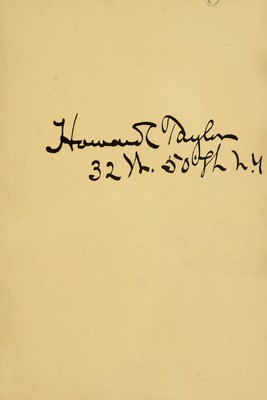 Howard C Taylor
32 W. 50th N.Y